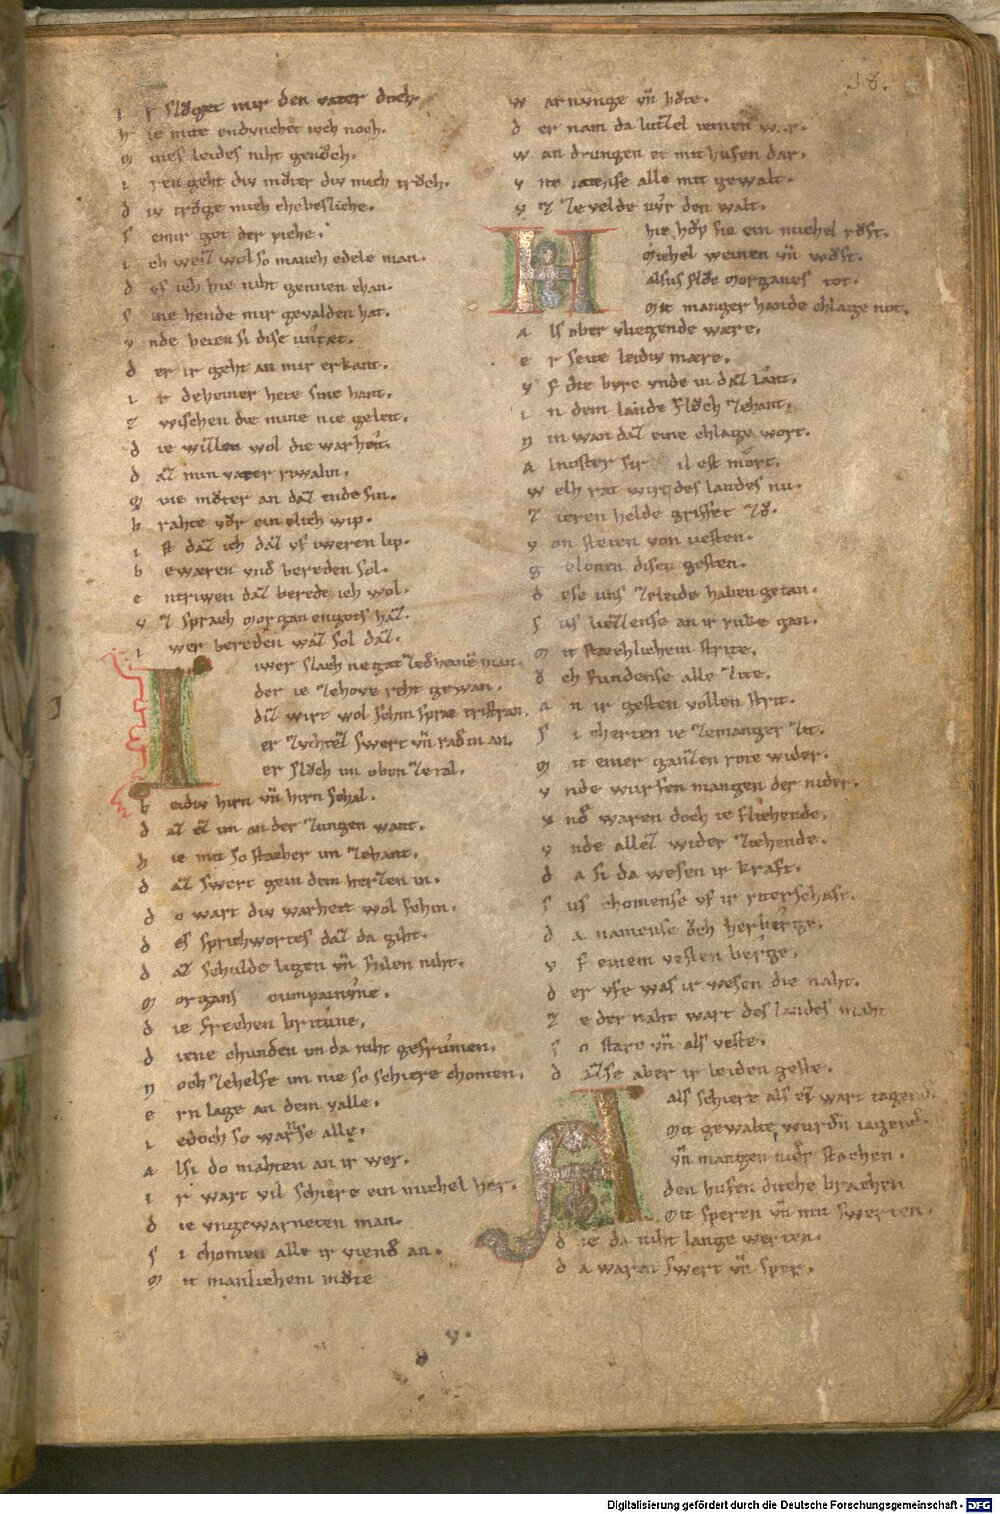 38.
i r slůget mir den vater doch.
h ie mite endunchet iuch noch.
m ines leides niht genůch.
i ren geht div můter div mich trůch.
d iv trůge mich chebesliche.
s emir got der riche.
i ch weiz wol so manch edele man.
d es ich hie niht gennen chan.
s ine hende mir gevalden hat.
v nde heten si dise untæt.
d er ir geht an mir erkant.
i r deheiner hete sine hant.
z wischen die mine nie geleit.
d ie wizzen wol die warheit.
d az min vater riwalin.
m ine můter an daz ende sin.
b rahte vůr ein elich wip.
i st daz ich daz vf iweren lip.
b ewæren vnd bereden sol.
e ntriwen daz berede ich wol.
v z sprach morgan engots haz.
i wer bereden waz sol daz.
I iwer slach negat ze dheinē man.
der ie zehove reht gewan.
diz wirt wol schin sprac tristran.
er zuchtez swert vn̄ ran in an.
er slůch im oben ze tal.
b eidiv hirn vn̄ hirn schal.
d az ez im an der zungen want.
h ie mit so stacher im zehant.
d az swert gein dem herzen in.
d o wart div warheit wol schin.
d es sprichwortes daz da giht.
d az schulde ligen vn̄ fulen niht.
m organs cumpainyne.
d ie frechen britune.
d iene chunden im da niht gefrumen.
n och zehelfe im nie so schiere chomen.
e rn lage an dem valle.
i edoch so warsse alle.
a lsi do mahten an ir wer.
i r wart vil schiere ein michel her.
d ie vngewarneten man.
s i chomen alle ir viende an.
m it manlichem můte
w arnunge vn̄ hůte.
d er nam da luzzel iemen war.
w an drungen et mit husen dar.
v nt tatense alle mit gewalt.
v z ze velde vur den walt.
H hie hůp sie ein michel růft.
michel weinen vn̄ wůft.
alsus flůc morganes tot.
mit manger hande chlage not.
a ls ober vliegende wære.
e r seite leidiv mære.
v f die burc vnde in daz lant.
i n dem lande flůch zehant.
n iu wan daz eine chlage wort.
A lnoster sir il est mort.
w elh rat wirt des landes nu.
z ieren helde griffet zů.
v on steten von vesten.
g elonen disen gesten.
d ese uns zeleide haben getan.
s us liezzense an ir rucke gan.
m it stæchlichem strite.
ů ch fundense alle zite.
a n ir gesten vollen strit.
s i cherten ie zemanger zit.
m it einer ganzen rote wider.
v nde wurfen mangen der nider.
v nd waren doch ie fliehende.
v nde allez wider ziehende.
d a si da wesen ir kraft.
s us chomense vf ir riterschaft.
d a namense ůch herberge.
v f einem vesten berge.
d er vfe was ir wesen die naht.
z e der naht wart des landes maht
s o starc vn̄ als veste.
d azse aber ir leiden geste.
A als schiere als ez wart
mit gewalte wurdn iagende.
vn̄ mangen nidr stachen.
den husen dicche brachen
mit speren vn̄ mit swerten.
d ie da niht lange werten.
d a waren swert vn̄ sper.
v.
Digitalisierung gefördert durch die Deutsche Forschungsgemeinschaft - DFG